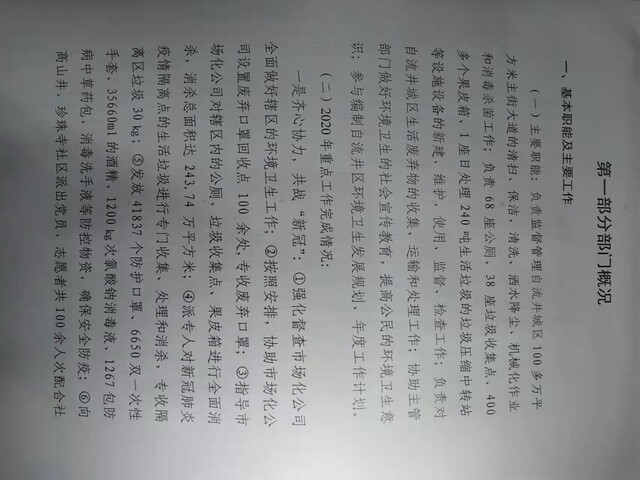 第一部分部门概况
一、基本职能及主要工作
（一）主要职能：负责监督管理自流井城区 100 多万平
方米主街大道的清扫、保洁、清洗、洒水降尘、机械化作业
和消毒杀菌工作；负责 68 座公厕、38 座垃圾收集点、400
多个果皮箱、1 座日处理 240 吨生活垃圾的垃圾压缩中转站
等设施设备的新建、维护、使用、监督、检查工作；负责对
自流井城区生活废弃物的收集、运输和处理工作；协助主管
部门做好环境卫生的社会宣传教育，提高公民的环境卫生意
识；参与编制自流井区环境卫生发展规划、年度工作计划。
（二）2020 年重点工作完成情况：
一是齐心协力，共战“新冠”：①强化督查市场化公司
全面做好辖区的环境卫生工作；②按照安排，协助市场化公
司设置废弃口罩回收点 100 余处,专收废弃口罩；③指导市
场化公司对辖区内的公厕、垃圾收集点、果皮箱进行全面消
杀，消杀总面积达 243.74 万平方米；④派专人对新冠肺炎
疫情隔离点的生活垃圾进行专门收集、处理和消杀，专收隔
离区垃圾 30 kg；⑤发放 41837 个防护口罩、6650 双一次性
手套、35660ml 的酒精、1200 kg 次氯酸钠消毒液、1267 包防
病中草药包，消毒洗手液等防控物资，确保安全防疫；⑥向
高山井、珍珠寺社区派出党员、志愿者共 100 余人次配合社